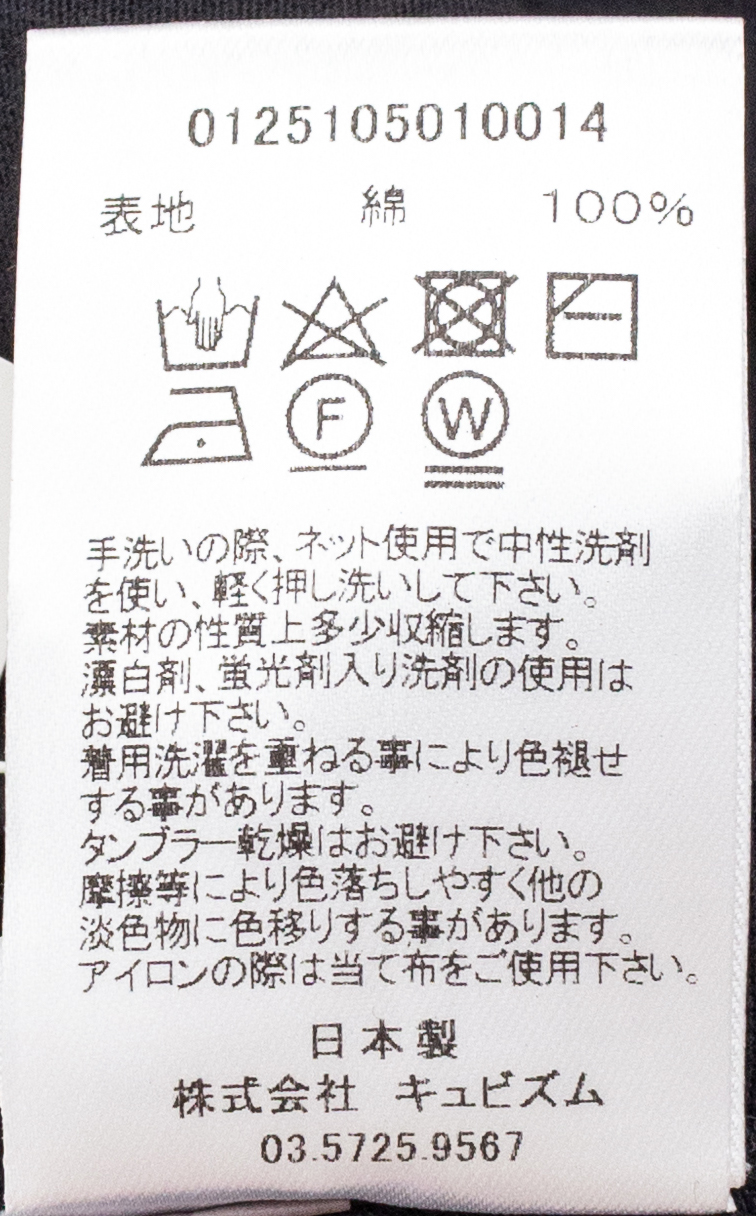 0125105010014
表地 綿 100%
F W
手洗いの際、ネット使用で中性洗剤
を使い、軽く押し洗いして下さい。
素材の性質上多少収縮します。
漂白剤、蛍光剤入り洗剤の使用は
お避け下さい。
着用洗濯を重ねる事により色褪せ
する事があります。
タンブラー乾燥はお避け下さい。
摩擦等により色落ちしやすく他の
淡色物に色移りする事があります。
アイロンの際は当て布をご使用下さい。
日本製
株式会社 キュビズム
03.5725.9567